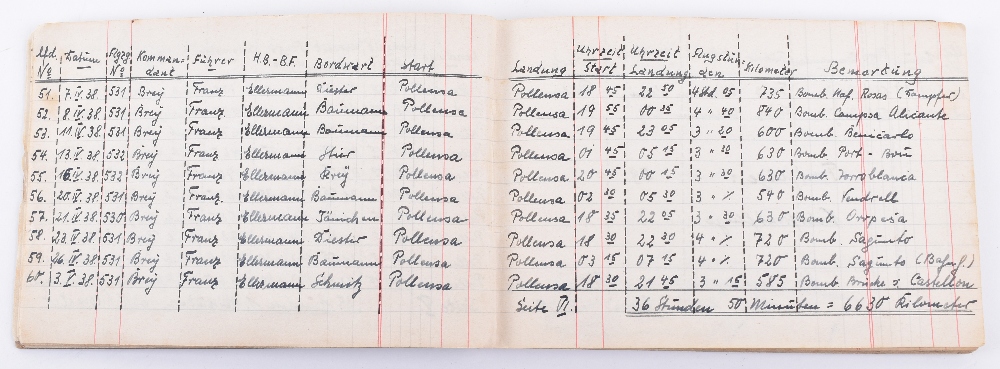 Lfd. Nº Datum Flgzg. Nº Komman-dant Führer H.B.-B.F. Bordwart Start Landung Uhrzeit Start Uhrzeit Landung Flugstün-den Kilometer Bemerkung
51. 7.IV.38. 531 Breÿ Franz Ellermann Diester Pollensa Pollensa 18 45 22 50 4 Std. 05 735 Bomb. Haf. Rosas (Dampfer)
52. 8.IV.38. 531 Breÿ Franz. Ellermann Baumann Pollensa Pollensa 19 55 00 35 4 " 40 840 Bomb. Campsa Alicante
53. 11.IV.38. 531 Breÿ Franz Ellermann Baumann Pollensa Pollensa 19 45 23 05 3 " 20 600 Bomb. Benicarlo
54. 13.IV.38. 532 Breÿ Franz Ellermann Stier Pollensa Pollensa 01 45 05 15 3 " 30 630 Bomb. Port-Bou
55. 16.IV.38. 532 Breÿ Franz Ellermann Pollensa Pollensa 20 45 00 15 3 " 30 630 Bomb. Torroblanca
56. 20.IV.38. 531 Breÿ Franz Ellermann Baumann Pollensa Pollensa 02 30 05 30 3 " % 540 Bomb. Vendrell
57. 21.IV.38. 530 Breÿ Franz. Ellermann Jänichen Pollensa Pollensa 18 35 22 05 3 " 30 630 Bomb. Oropesa
58. 23.IV.38. 531 Breÿ Franz Ellermann Diester Pollensa Pollensa 18 30 22 30 4 " % 720 Bomb. Sagunto
59. 26.IV.38. 531 Breÿ Franz Ellermann Baumann Pollensa Pollensa 03 15 07 15 4 " % 720 Bomb. Sagunto (Bahnf.)
60. 3.V.38. 531 Breÿ Franz Ellermann Schmitz Pollensa Pollensa 18 30 21 45 3 " 15 585 Bomb. Brücke s. Castellon
Seite VI. 36 Stunden 50 Minuten = 6630 Kilometer